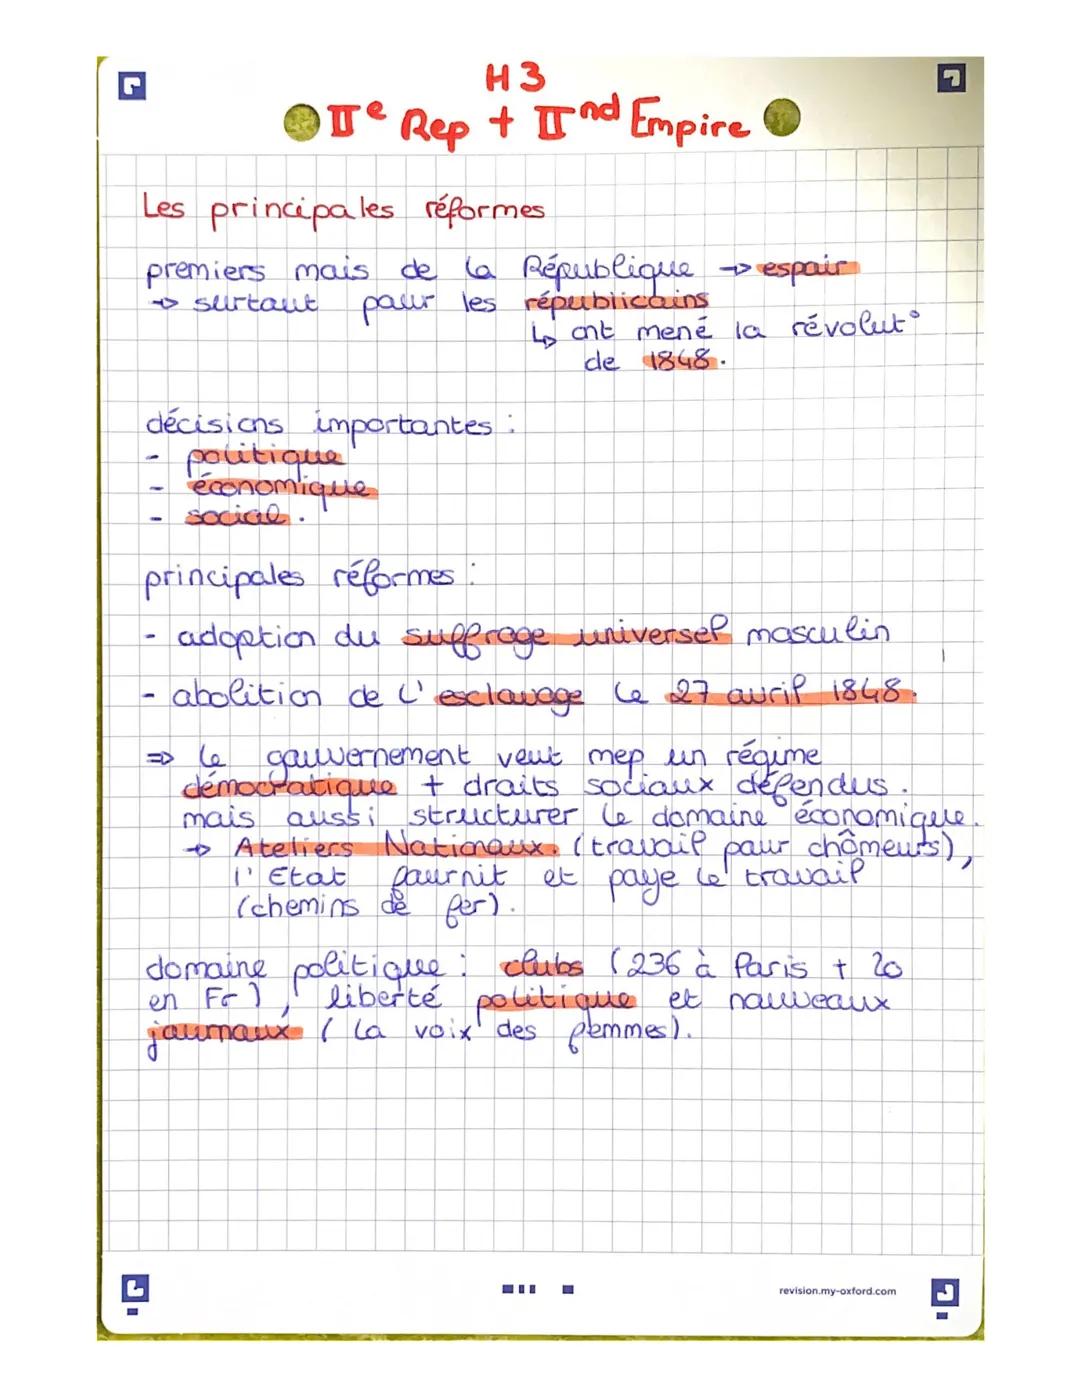 H3
IIe Rep + IInd Empire
Les principales réformes
premiers mois de la République → espoir
→ surtout pour les républicains
↳ ont mené la révolut°
de 1848.
décisions importantes :
- politique
- économique
- social.
principales réformes :
- adoption du suffrage universel masculin
- abolition de l'esclavage le 27 avril 1848.
⇒ le gouvernement veut mep un régime
démocratique + droits sociaux défendus.
mais aussi structurer le domaine économique.
→ Ateliers Nationaux. (travail pour chômeurs),
l'Etat fournit et paye le travail
(chemins de fer).
domaine politique : clubs (236 à Paris + 20
en Fr), liberté politique et nouveaux
journaux (la voix des femmes).
revision.my-oxford.com